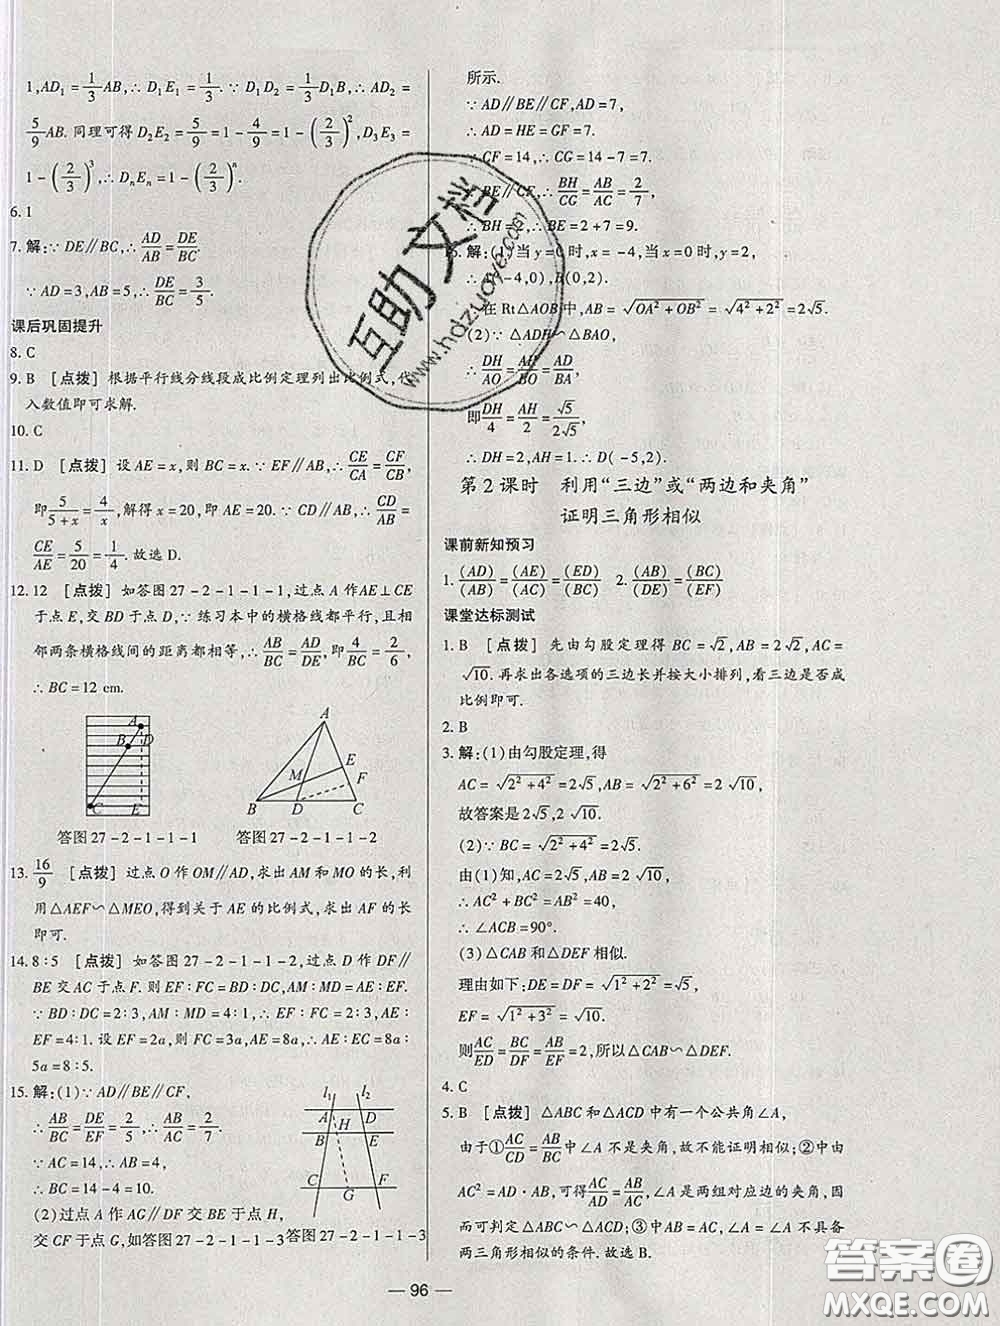 1,AD₁=1/3AB,∴D₁E₁=1/3.∵D₁D₂=1/3D₁B,∴AD₂=
5/9AB.同理可得D₂E₂=5/9=1-4/9=1-(2/3)²,D₃E₃=
1-(2/3)³,∴DₙEₙ=1-(2/3)ⁿ.
6.1
7.解:∵DE∥BC,∴AD/AB=DE/BC.
∵AD=3,AB=5,∴DE/BC=3/5.
课后巩固提升
8.C
9.B [点拨] 根据平行线分线段成比例定理列出比例式,代
入数值即可求解.
10.C
11.D [点拨] 设AE=x,则BC=x.∵EF∥AB,∴CE/CA=CF/CB,
即5/(5+x)=4/x,解得x=20,即AE=20.∵CD∥AB,∴CD/AB=
CE/AE=5/20=1/4.故选D.
12.12 [点拨] 如答图27-2-1-1-1,过点A作AE⊥CE
于点E,交BD于点D,∵练习本中的横格线都平行,且相
邻两条横格线间的距离都相等,∴AB/BC=AD/DE,即4/BC=2/6,
∴BC=12 cm.
A
B D
C E
A
M E
F
B D C
答图27-2-1-1-1 答图27-2-1-1-2
13.16/9 [点拨] 过点O作OM∥AD,求出AM和MO的长,利
用△AEF∽△MEO,得到关于AE的比例式,求出AF的长
即可.
14.8∶5 [点拨] 如答图27-2-1-1-2,过点D作DF∥
BE交AC于点F.则EF∶FC=BD∶DC,AM∶MD=AE∶EF.
∵BD∶DC=2∶3,AM∶MD=4∶1,∴EF∶FC=2∶3,AE∶
EF=4∶1.设EF=2a,则FC=3a,AE=8a,∴AE∶EC=8a∶
5a=8∶5.
15.解:(1)∵AD∥BE∥CF,
∴AB/BC=DE/EF=2/5,∴AB/AC=2/7.
∵AC=14,∴AB=4,
∴BC=14-4=10.
(2)过点A作AG∥DF交BE于点H,
交CF于点G,如答图27-2-1-1-3
l₁ l₂
A D
H
B E
C F
G
答图27-2-1-1-3
所示.
∵AD∥BE∥CF,AD=7,
∴AD=HE=GF=7.
∵CF=14,∴CG=14-7=7.
∵BE∥CF,∴BH/CG=AB/AC=2/7,
∴BH=2,∴BE=2+7=9.
解:(1)当y=0时,x=-4,当x=0时,y=2,
∴A(-4,0),B(0,2).
在Rt△AOB中,AB=√(OA²+OB²)=√(4²+2²)=2√5.
(2)∵△ADH∽△BAO,
∴DH/AO=AH/BO=AD/BA,
即DH/4=AH/2=√5/2√5,
∴DH=2,AH=1.∴D(-5,2).
第2课时 利用“三边”或“两边和夹角”
证明三角形相似
课前新知预习
1.(AD)/(AB)=(AE)/(AC)=(ED)/(BC) 2.(AB)/(DE)=(BC)/(EF)
课堂达标测试
1.B [点拨] 先由勾股定理得BC=√2,AB=2√2,AC=
√10.再求出各选项的三边长并按大小排列,看三边是否成
比例即可.
2.B
3.解:(1)由勾股定理,得
AC=√(2²+4²)=2√5,AB=√(2²+6²)=2√10.
故答案是2√5,2√10.
(2)∵BC=√(2²+4²)=2√5.
由(1)知,AC=2√5,AB=2√10,
∴AC²+BC²=AB²=40,
∴∠ACB=90°.
(3)△CAB和△DEF相似.
理由如下:DE=DF=√(1²+2²)=√5,
EF=√(1²+3²)=√10.
则AC/ED=BC/DF=AB/EF=2,所以△CAB∽△DEF.
4.C
5.B [点拨] △ABC和△ACD中有一个公共角∠A,
由于①AC/CD=AB/BC中∠A不是夹角,故不能证明相似;②中由
AC²=AD·AB,可得AC/AD=AB/AC,∠A是两组对应边的夹角,因
而可判定△ABC∽△ACD;③中AB=AC,∠A不具备
两三角形相似的条件.故选B.
— 96 —
互助文档
www.hdzuoye.com
答案圈
MXQE.COM